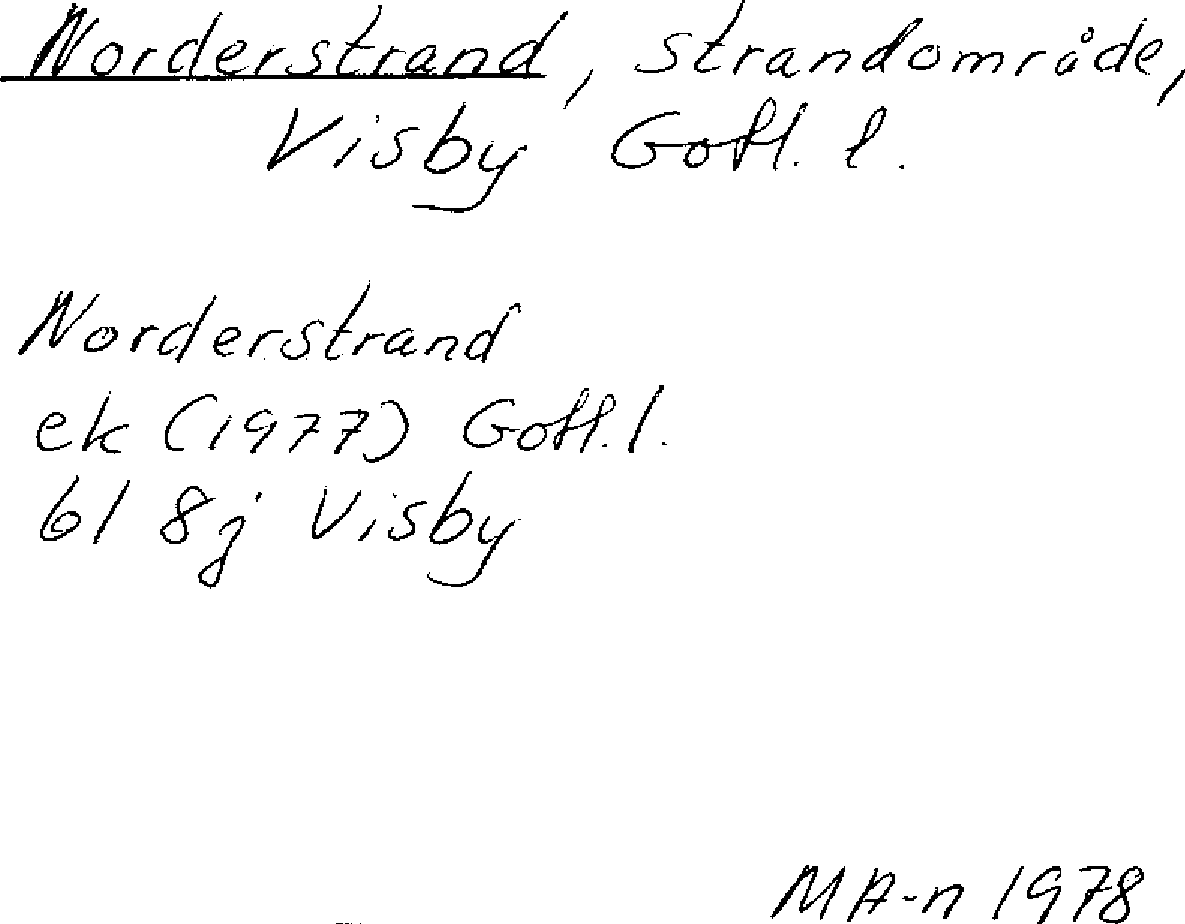 Norderstrand, strandområde,
Visby Gotl. l.
Norderstrand
ek (1977) Gotl. l.
6I 8j Visby
MA-n 1978